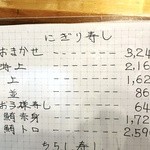 にぎり寿し
おまかせ 3,24
特上 2,16
上 1,62
並 86
お子様寿し 64
鯛赤身 1,72
鯛トロ 2,59
ちらし寿し